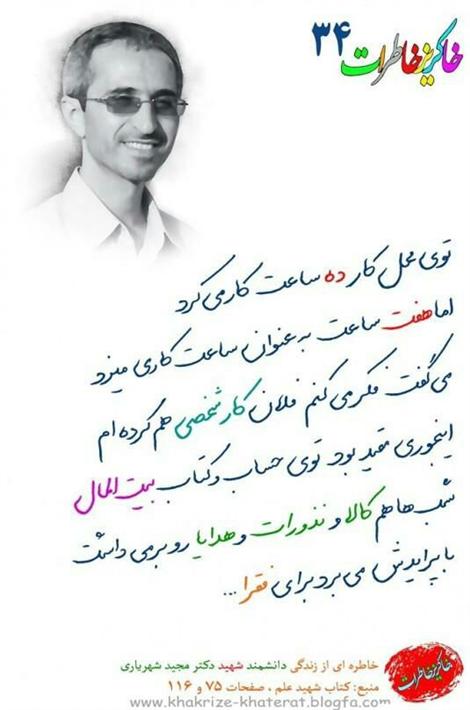 خاکریز خاطرات ۳۴
توی محل کار ده ساعت کار می کرد
اما هفت ساعت به عنوان ساعت کاری میزد
می گفت فکر می کنم فلان کار شخصی هم کرده ام
اینجوری مقید بود توی حساب و کتاب بیت المال
شب ها هم کالا و نذورات و هدایا رو بر می داشت
با پرایدش می برد برای فقرا ...
خاکریز خاطرات
خاطره ای از زندگی دانشمند شهید دکتر مجید شهریاری
منبع: کتاب شهید علم ، صفحات ۷۵ و ۱۱۶
www.khakrize-khaterat.blogfa.com